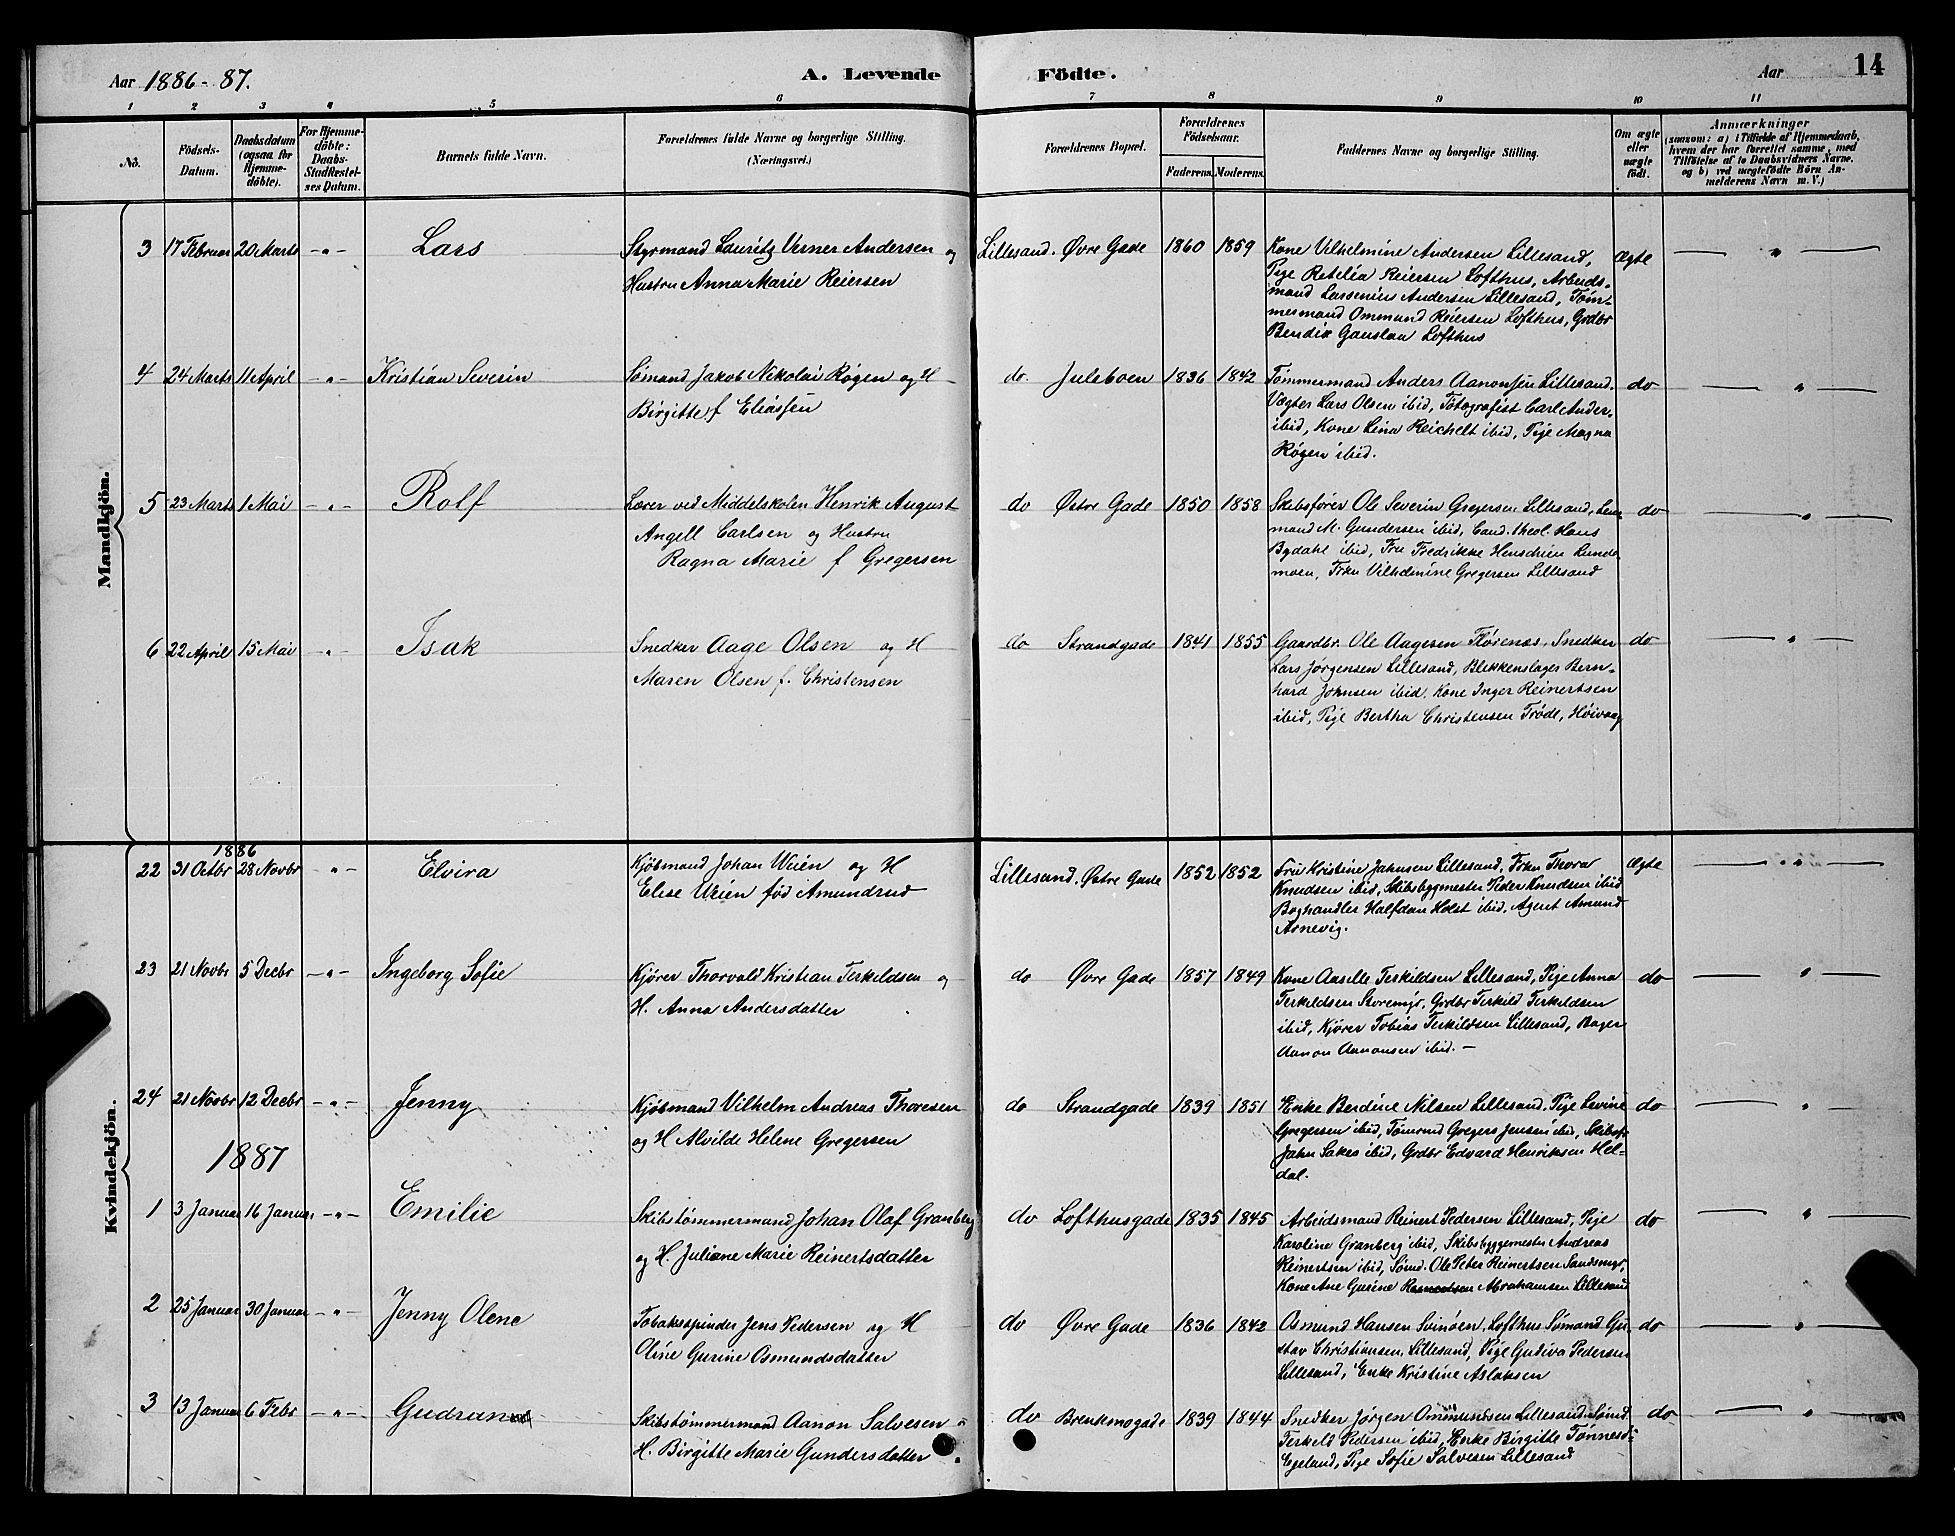 Aar 1886-87. A. Levende Födte. Aar 14
1 2 3 4 5 6 7 8 9 10 11
No. Födsels-Datum. Daabsdatum (ogsaa for Hjemmedöbte). For Hjemmedöbte: Daabs-Stadfæstelses Datum. Barnets fulde Navn. Forældrenes fulde Navne og borgerlige Stilling. (Næringsvei.) Forældrenes Bopæl. Forældrenes Födselsaar. Faderens. Moderens. Faddernes Navne og borgerlige Stilling. Om ægte eller uægte födt. Anmærkninger (saasom: a) i Tilfælde af Hjemmedaab, hvem der har forrettet samme, med Tilföielse af to Daabsvidners Navne. og b) ved uægtefödte Börn Anmelderens Navn m. V.)
Mandkjön.
3 17 Februar 20 Marts -"- Lars Styrmand Lauritz Verner Andersen og Lillesand. Øvre Gade 1860 1859 Kone Vilhelmine Andersen Lillesand, Ægte "
Hustru Anna Marie Reiersen Pige Retelia Reiersen Lofthus, Arbeids-
mand Larsenius Andersen Lillesand, Töm-
mermand Ommund Reiersen Lofthus, Grdbr
Bendix Gauslaa Lofthus
4 24 Marts 11 April -"- Kristian Severin Sømand Jakob Nikolai Røgen og H do. Juleboen 1836 1842 Tømmermand Anders Aanonsen Lillesand. do "
Birgitte f Eliassen Vægter Lars Olsen ibid, Fotografist Carl Ander-
ibid, Kone Lina Reichelt ibid, Pige Magna
Røgen ibid.
5 23 Marts 1 Mai -"- Rolf Lærer ved Middelskolen Henrik August do Østre Gade 1850 1858 Skibsfører Ole Severin Gregersen Lillesand, do "
Angell Carlsen og Hustru mand M. Gundersen ibid, Cand. theol. Hans
Ragna Marie f Gregersen Bydahl ibid, Fru Fredrikke Henschien Lunde-
moen, Frkn Vilhelmine Gregersen Lillesand
6 22 April 15 Mai -"- Isak Snedker Aage Olsen og H do Strandgade 1841 1855 Gaardbr. Ole Aagesen Flørenæs, Snedker do "
Maren Olsen f. Christensen Lars Jørgensen Lillesand, Blikkenslager Bern-
hard Johnsen ibid. Kone Inger Reinertsen
ibid, Pige Bertha Christensen Trøde, Høivaag
Kvindekjön.
1886
22 31 Octbr 28 Novbr -"- Elvira Kjøbmand Johan Weien og H Lillesand. Østre Gade 1852 1852 Fru Kristine Jahnsen Lillesand, Frkn Thora Ægte "
Elise Weien fød Amundrud Knudsen ibid, Skibsbygmester Peder Knudsen ibid
Boghandler Halfdan Holst ibid. Agent Amund
Arnevig.
23 21 Novbr 5 Decbr -"- Ingeborg Sofie Kjører Thorvald Kristian Terkildsen og do Øvre Gade 1857 1849 Kone Aaselle Terkildsen Lillesand, Pige Anna do "
H. Anna Andersdatter Terkildsen Storemyr, Grdbr Terkild Terkildsen
ibid, Kjører Tobias Terkildsen Lillesand, Bager
Aanon Aanonsen ibid. -
24 21 Novbr 12 Decbr -"- Jenny Kjøbmand Vilhelm Andreas Thoresen do Strandgade 1839 1851 Enke Berdine Nilsen Lillesand, Pige Levine do "
og H Alvilde Helene Gregersen Gregersen ibid, Tømmd Gregers Jensen ibid, Skibsf.
1887 John Sakes ibid, Grdbr Edvard Henriksen Hel-
dal.
1 3 Januar 16 Januar -"- Emilie Skibstømmermand Johan Olaf Granberg do Lofthusgade 1835 1845 Arbeidsmand Reinert Pedersen Lillesand, Pige do "
og H. Juliane Marie Reinertsdatter Karoline Granberg ibid, Skibsbyggemester Andreas
Reinertsen ibid, Sømd. Ole Peter Reinertsen Sandsmyr,
Kone Ane Gurine Abrahamsen Lillesand
2 25 Januar 30 Januar -"- Jenny Olene Tobakspinder Jens Pedersen og H do Øvre Gade 1836 1842 Osmund Hansen Svinøen, Lofthus Sømand Gu- do "
Oline Gurine Osmundsdatter stav Christiansen Lillesand, Pige Gudiva Pedersen
Lillesand, Enke Kristine Aslaksen
3 13 Januar 6 Febr -"- Gudrun Skibstømmermand Aanon Salvesen o do Brekmogade 1839 1844 Snedker Jørgen Ommundsen Lillesand. Sømd. do "
H. Birgitte Marie Gundersdatter Terkeld Pedersen ibid, Enke Birgitte Tønnesd-
Egeland, Pige Sofie Salvesen Lillesand